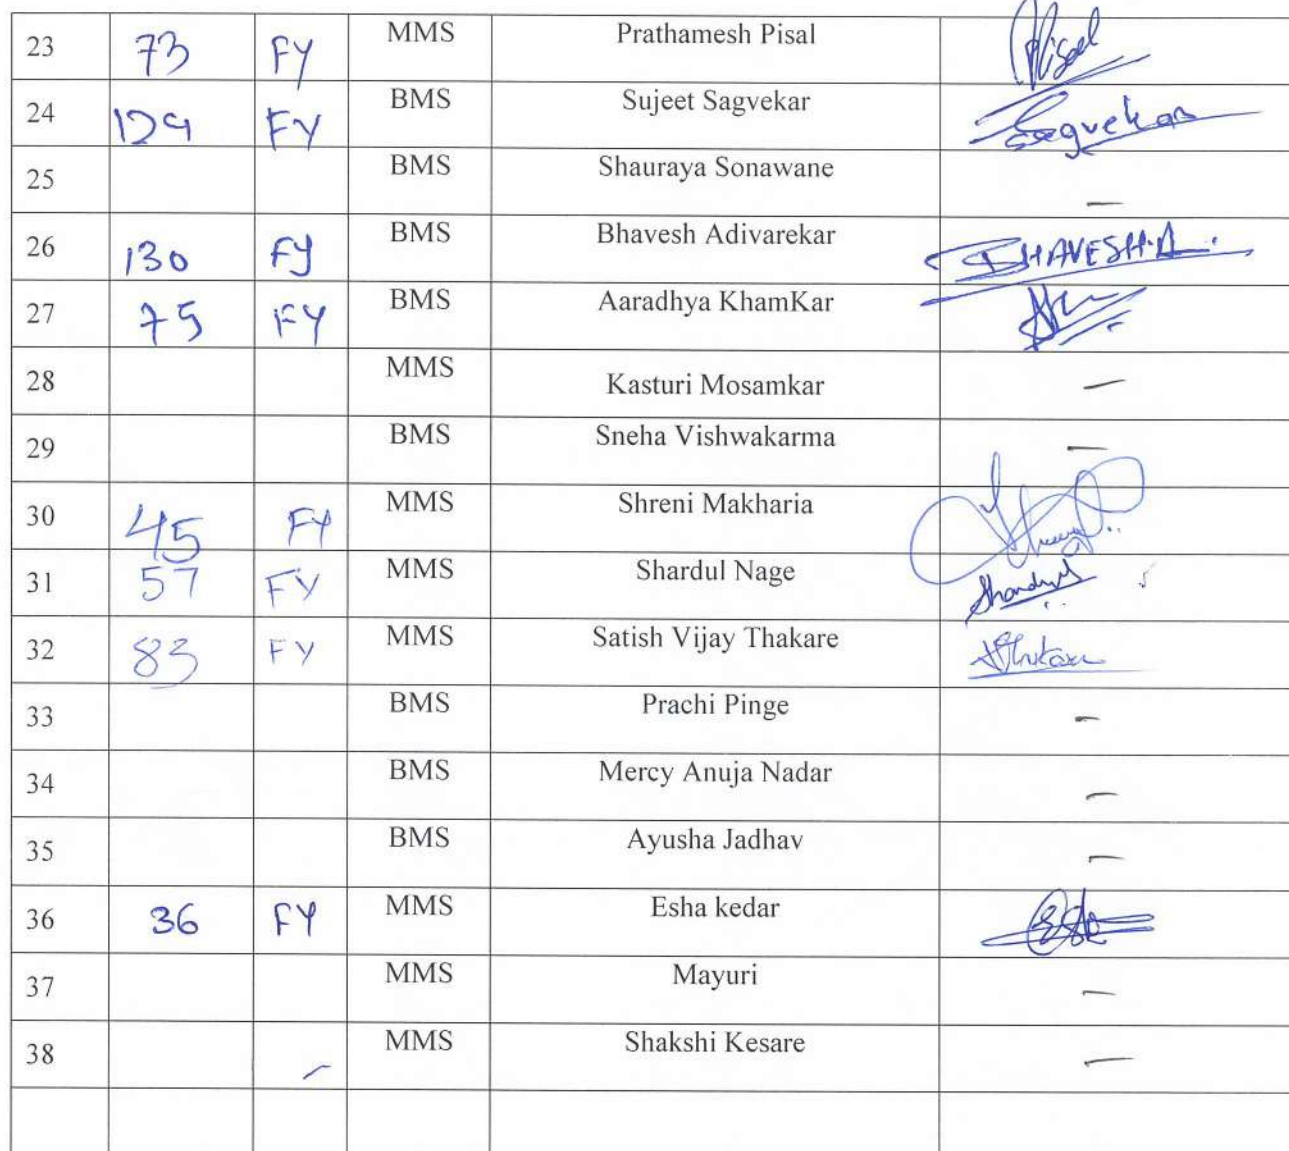 23 73 FY MMS Prathamesh Pisal Pisal
24 129 FY BMS Sujeet Sagvekar Sagvekar
25 BMS Shauraya Sonawane –
26 130 FY BMS Bhavesh Adivarekar BHAVESH.A.
27 75 FY BMS Aaradhya KhamKar
28 MMS Kasturi Mosamkar –
29 BMS Sneha Vishwakarma –
30 45 FY MMS Shreni Makharia
31 57 FY MMS Shardul Nage
32 83 FY MMS Satish Vijay Thakare
33 BMS Prachi Pinge –
34 BMS Mercy Anuja Nadar –
35 BMS Ayusha Jadhav –
36 36 FY MMS Esha kedar
37 MMS Mayuri –
38 – MMS Shakshi Kesare –